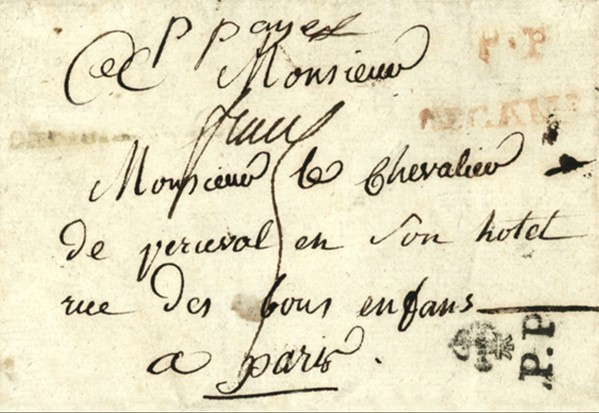 p payé
P.P
A Monsieur
franc
Monsieur le Chevalier
de perceval en son hotel
rue des bons enfans
a paris.
P.P